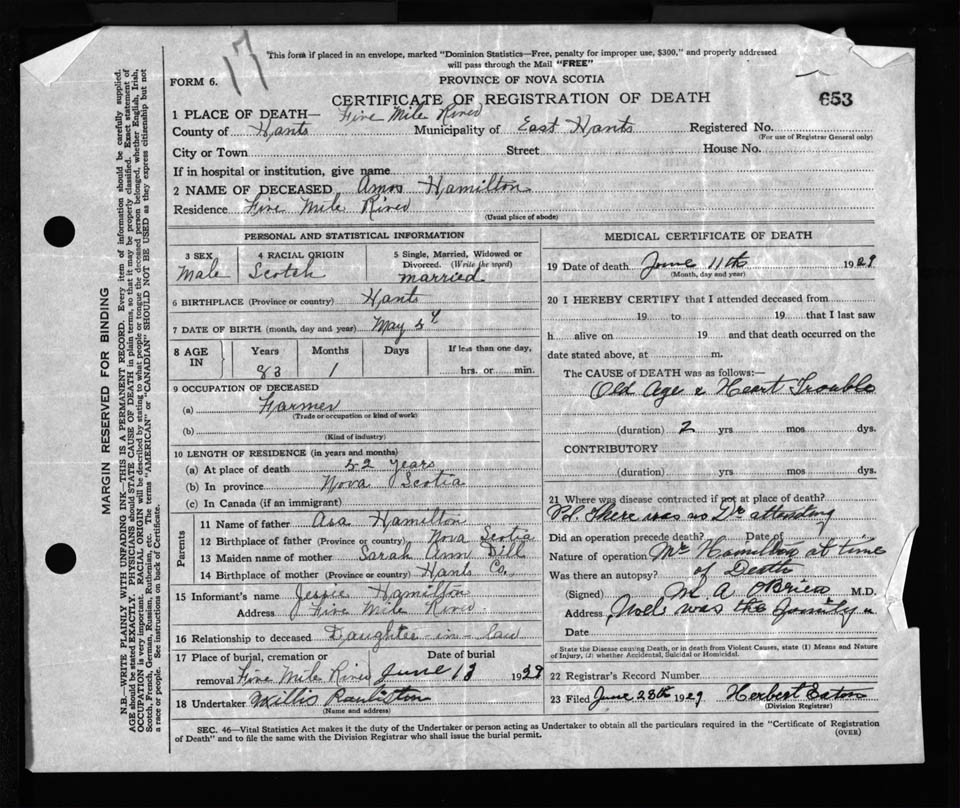 17
This form if placed in an envelope, marked "Dominion Statistics—Free, penalty for improper use, $300," and properly addressed
will pass through the Mail "FREE"
FORM 6.
PROVINCE OF NOVA SCOTIA
CERTIFICATE OF REGISTRATION OF DEATH
653
1 PLACE OF DEATH— Five Mile River
County of Hants Municipality of East Hants Registered No.
(For use of Registrar General only)
City or Town Street House No.
If in hospital or institution, give name
2 NAME OF DECEASED Amos Hamilton
Residence Five Mile River
(Usual place of abode)
PERSONAL AND STATISTICAL INFORMATION
3 SEX
Male
4 RACIAL ORIGIN
Scotch
5 Single, Married, Widowed or
Divorced. (Write the word)
married
6 BIRTHPLACE (Province or country) Hants
7 DATE OF BIRTH (month, day and year) May
8 AGE IN
Years Months Days If less than one day,
83 1 hrs. or min.
9 OCCUPATION OF DECEASED
(a) Farmer
(Trade or occupation or kind of work)
(b)
(Kind of industry)
10 LENGTH OF RESIDENCE (in years and months)
(a) At place of death 52 years
(b) In province Nova Scotia
(c) In Canada (if an immigrant)
Parents
11 Name of father Asa Hamilton
12 Birthplace of father (Province or country) Nova Scotia
13 Maiden name of mother Sarah Ann Dill
14 Birthplace of mother (Province or country) Hants Co.
15 Informant's name Jessie Hamilton
Address Five Mile River
16 Relationship to deceased Daughter-in-law
17 Place of burial, cremation or Date of burial
removal Five Mile River June 13 1929
18 Undertaker Willis
(Name and address)
MEDICAL CERTIFICATE OF DEATH
19 Date of death June 11th 1929
(Month, day and year)
20 I HEREBY CERTIFY that I attended deceased from
19 to 19 that I last saw
h alive on 19 and that death occurred on the
date stated above, at m.
The CAUSE of DEATH was as follows:—
Old Age & Heart Trouble
(duration) 2 yrs mos dys.
CONTRIBUTORY
(duration) yrs mos dys.
21 Where was disease contracted if not at place of death?
There was no Dr attending
Did an operation precede death? Date of
Nature of operation Mr Hamilton at time
Was there an autopsy? of Death
(Signed) M A O'Brien M.D.
Address was the family
Date
State the Disease causing Death, or in death from Violent Causes, state (1) Means and Nature
of Injury, (2) whether Accidental, Suicidal or Homicidal.
22 Registrar's Record Number
23 Filed June 28th 1929 Herbert Eaton
(Division Registrar)
SEC. 46—Vital Statistics Act makes it the duty of the Undertaker or person acting as Undertaker to obtain all the particulars required in the "Certificate of Registration
of Death" and to file the same with the Division Registrar who shall issue the burial permit.
(OVER)
MARGIN RESERVED FOR BINDING
N.B.—WRITE PLAINLY WITH UNFADING INK—THIS IS A PERMANENT RECORD. Every item of information should be carefully supplied.
AGE should be stated EXACTLY. PHYSICIANS should STATE CAUSE OF DEATH in plain terms, so that it may be properly classified. Exact statement of
OCCUPATION is very important. RACIAL ORIGIN will be described by stating to what people or tongue the deceased person belonged, whether English, Irish,
Scotch, French, German, Russian, Ruthenian, etc. The terms "AMERICAN" or "CANADIAN" SHOULD NOT BE USED as they express citizenship but not
a race or people. See instructions on back of Certificate.